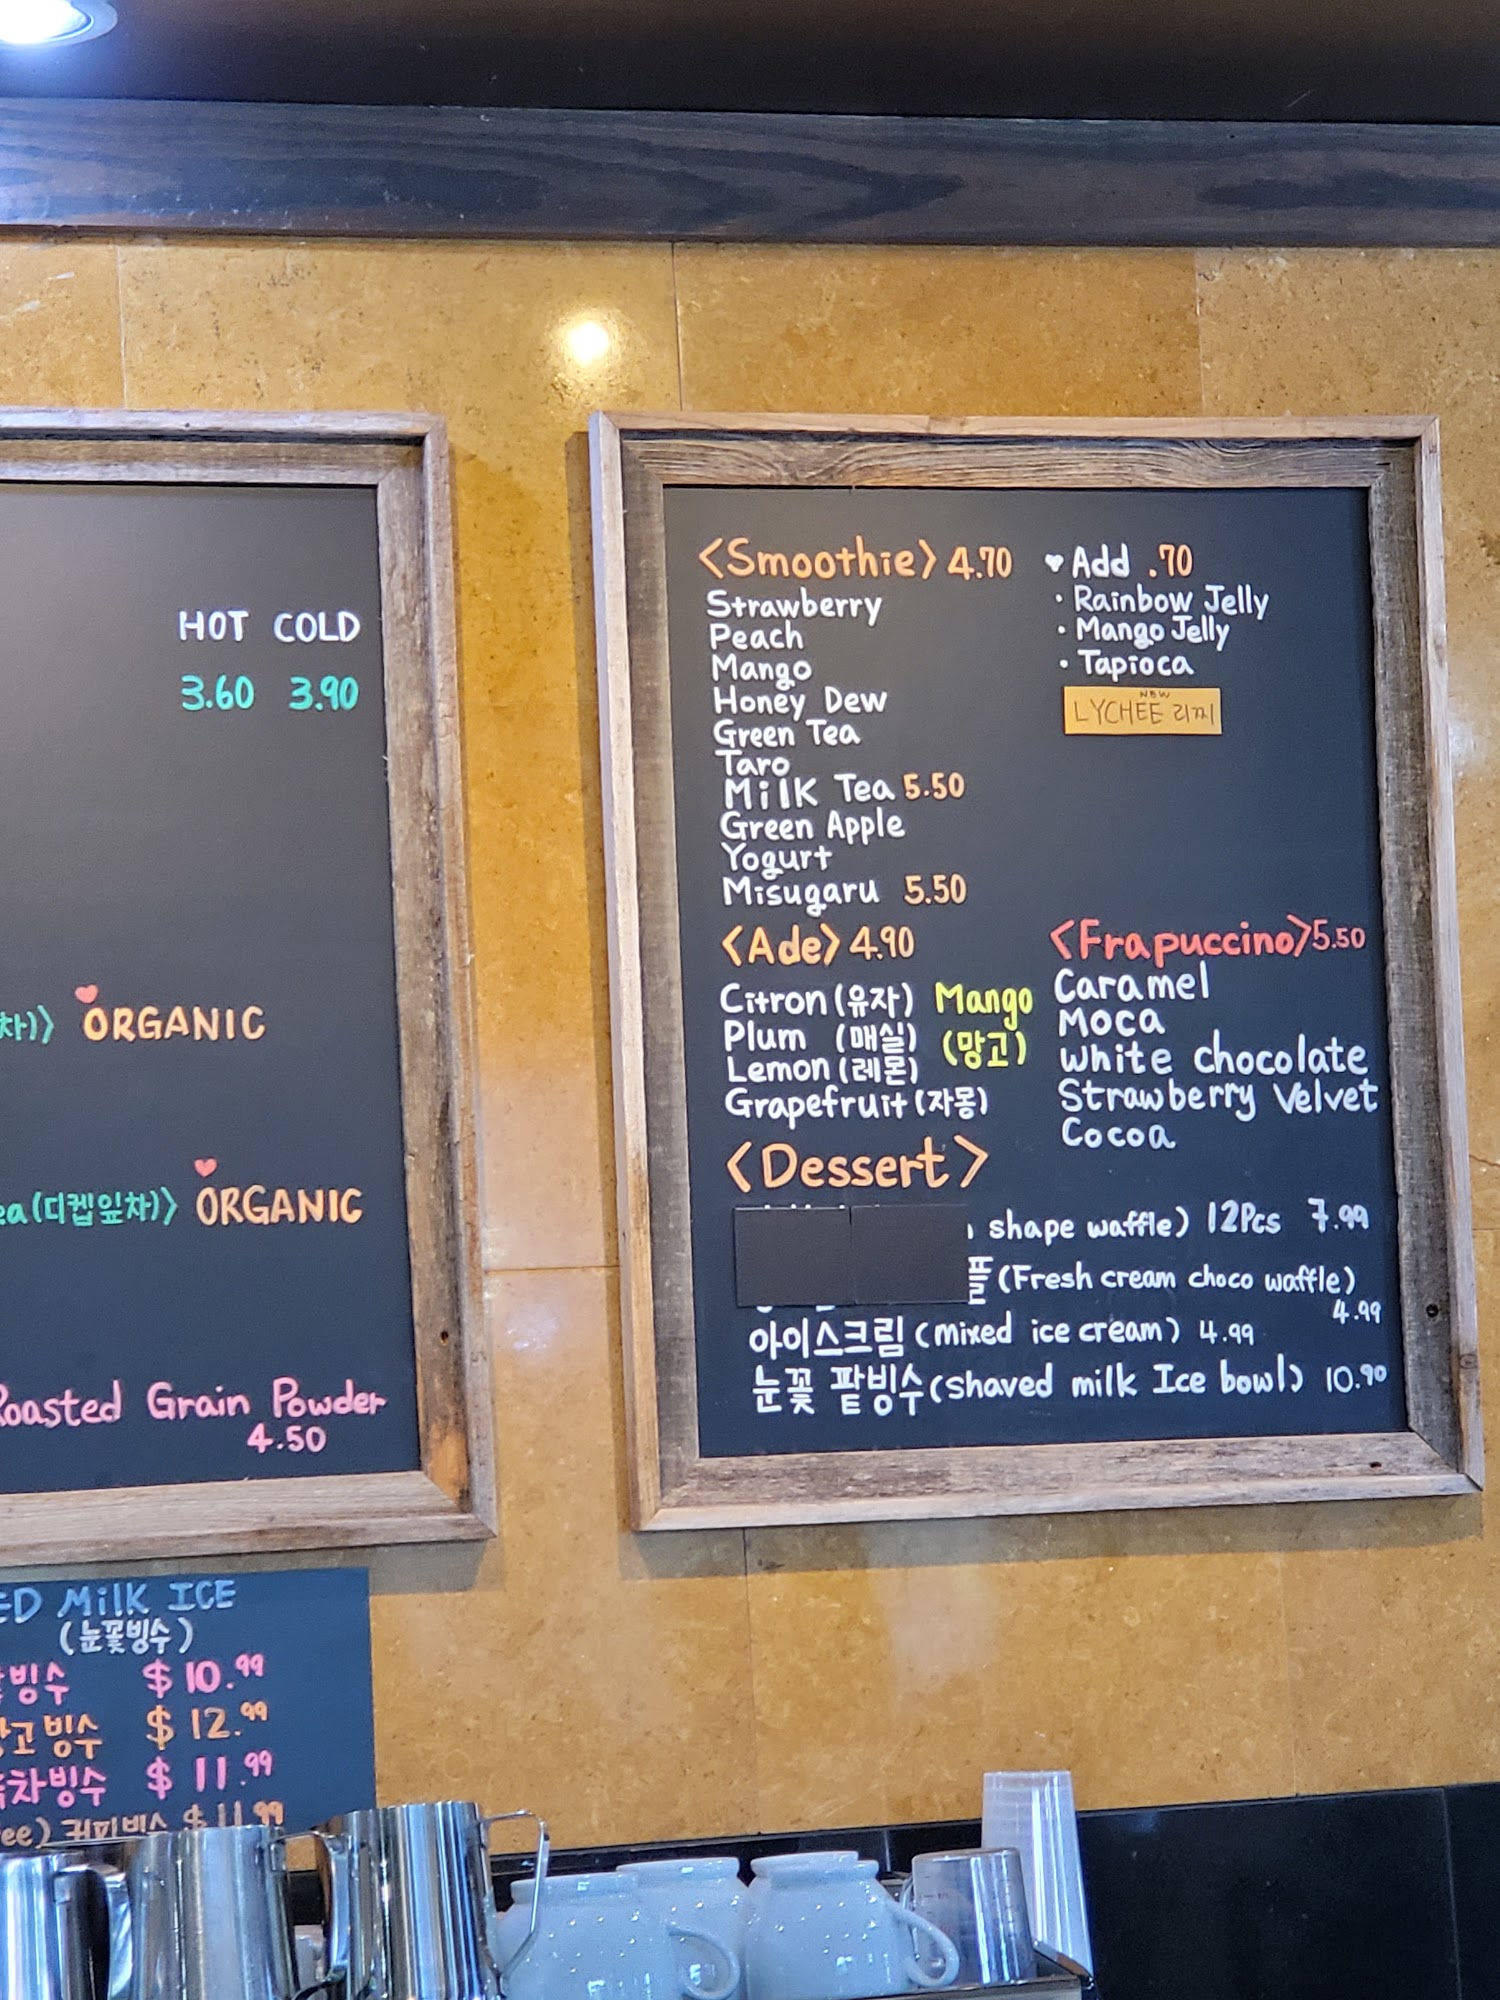 HOT COLD
3.60 3.90
차)〉 ORGANIC
ea(디켑잎차)〉 ORGANIC
Roasted Grain Powder
4.50
<Smoothie> 4.70
Strawberry
Peach
Mango
Honey Dew
Green Tea
Taro
Milk Tea 5.50
Green Apple
Yogurt
Misugaru 5.50
♥ Add .70
· Rainbow Jelly
· Mango Jelly
· Tapioca
NEW
LYCHEE 리찌
<Ade> 4.90
Citron (유자)
Plum (매실)
Lemon (레몬)
Grapefruit (자몽)
Mango
(망고)
<Frapuccino> 5.50
Caramel
Moca
White chocolate
Strawberry Velvet
Cocoa
<Dessert>
shape waffle) 12Pcs 7.99
플 (Fresh cream choco waffle)
4.99
아이스크림 (mixed ice cream) 4.99
눈꽃 팥빙수 (shaved milk Ice bowl) 10.90
ED Milk ICE
(눈꽃빙수)
빙수 $10.99
고빙수 $12.99
차빙수 $11.99
ee) 커피빙수 $11.99